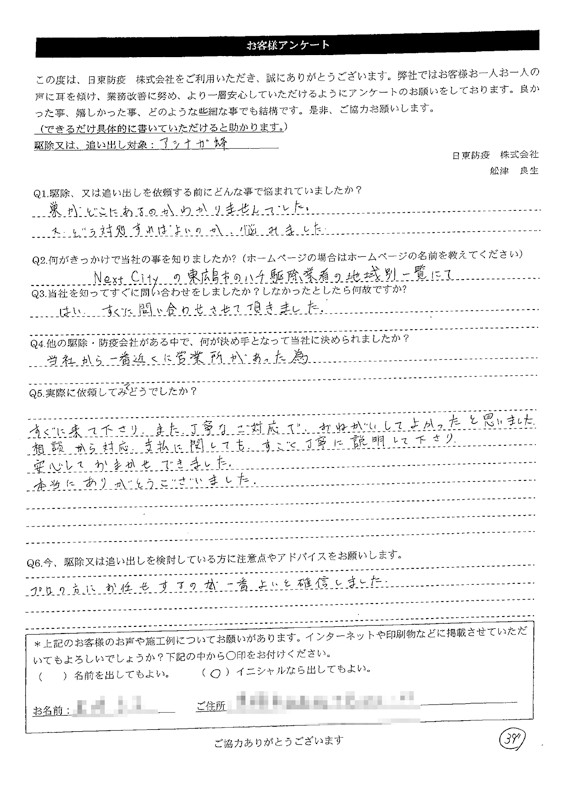 お客様アンケート
この度は、日東防疫 株式会社をご利用いただき、誠にありがとうございます。弊社ではお客様お一人お一人の
声に耳を傾け、業務改善に努め、より一層安心していただけるようにアンケートのお願いをしております。良か
った事、嬉しかった事、どのような些細な事でも結構です。是非、ご協力お願いします。
(できるだけ具体的に書いていただけると助かります。)
駆除又は、追い出し対象:アシナガ蜂
日東防疫 株式会社
舩津 良生
Q1.駆除、又は追い出しを依頼する前にどんな事で悩まれていましたか?
巣がどこにあるのかわかりませんでした。
又、どういう対処すればよいのか、悩みました
Q2.何がきっかけで当社の事を知りましたか?(ホームページの場合はホームページの名前を教えてください)
Next City の東広島市のハチ駆除業者の地域別一覧にて
Q3.当社を知ってすぐに問い合わせをしましたか?しなかったとしたら何故ですか?
はい、すぐに問い合わせさせて頂きました。
Q4.他の駆除・防疫会社がある中で、何が決め手となって当社に決められましたか?
当社から一番近くに営業所があった為
Q5.実際に依頼してみてどうでしたか?
すぐに来て下さり、また丁寧なご対応で、おねがいしてよかったと思いました
相談から対応、支払に関しても、すごく丁寧に説明して下さり、
安心しておまかせできました。
本当にありがとうございました。
Q6.今、駆除又は追い出しを検討している方に注意点やアドバイスをお願いします。
プロの方にお任せするのが一番よいと確信しました。
*上記のお客様のお声や施工例についてお願いがあります。インターネットや印刷物などに掲載させていただ
いてもよろしいでしょうか?下記の中から〇印をお付けください。
( )名前を出してもよい。 (〇)イニシャルなら出してもよい。
お名前: ご住所
ご協力ありがとうございます